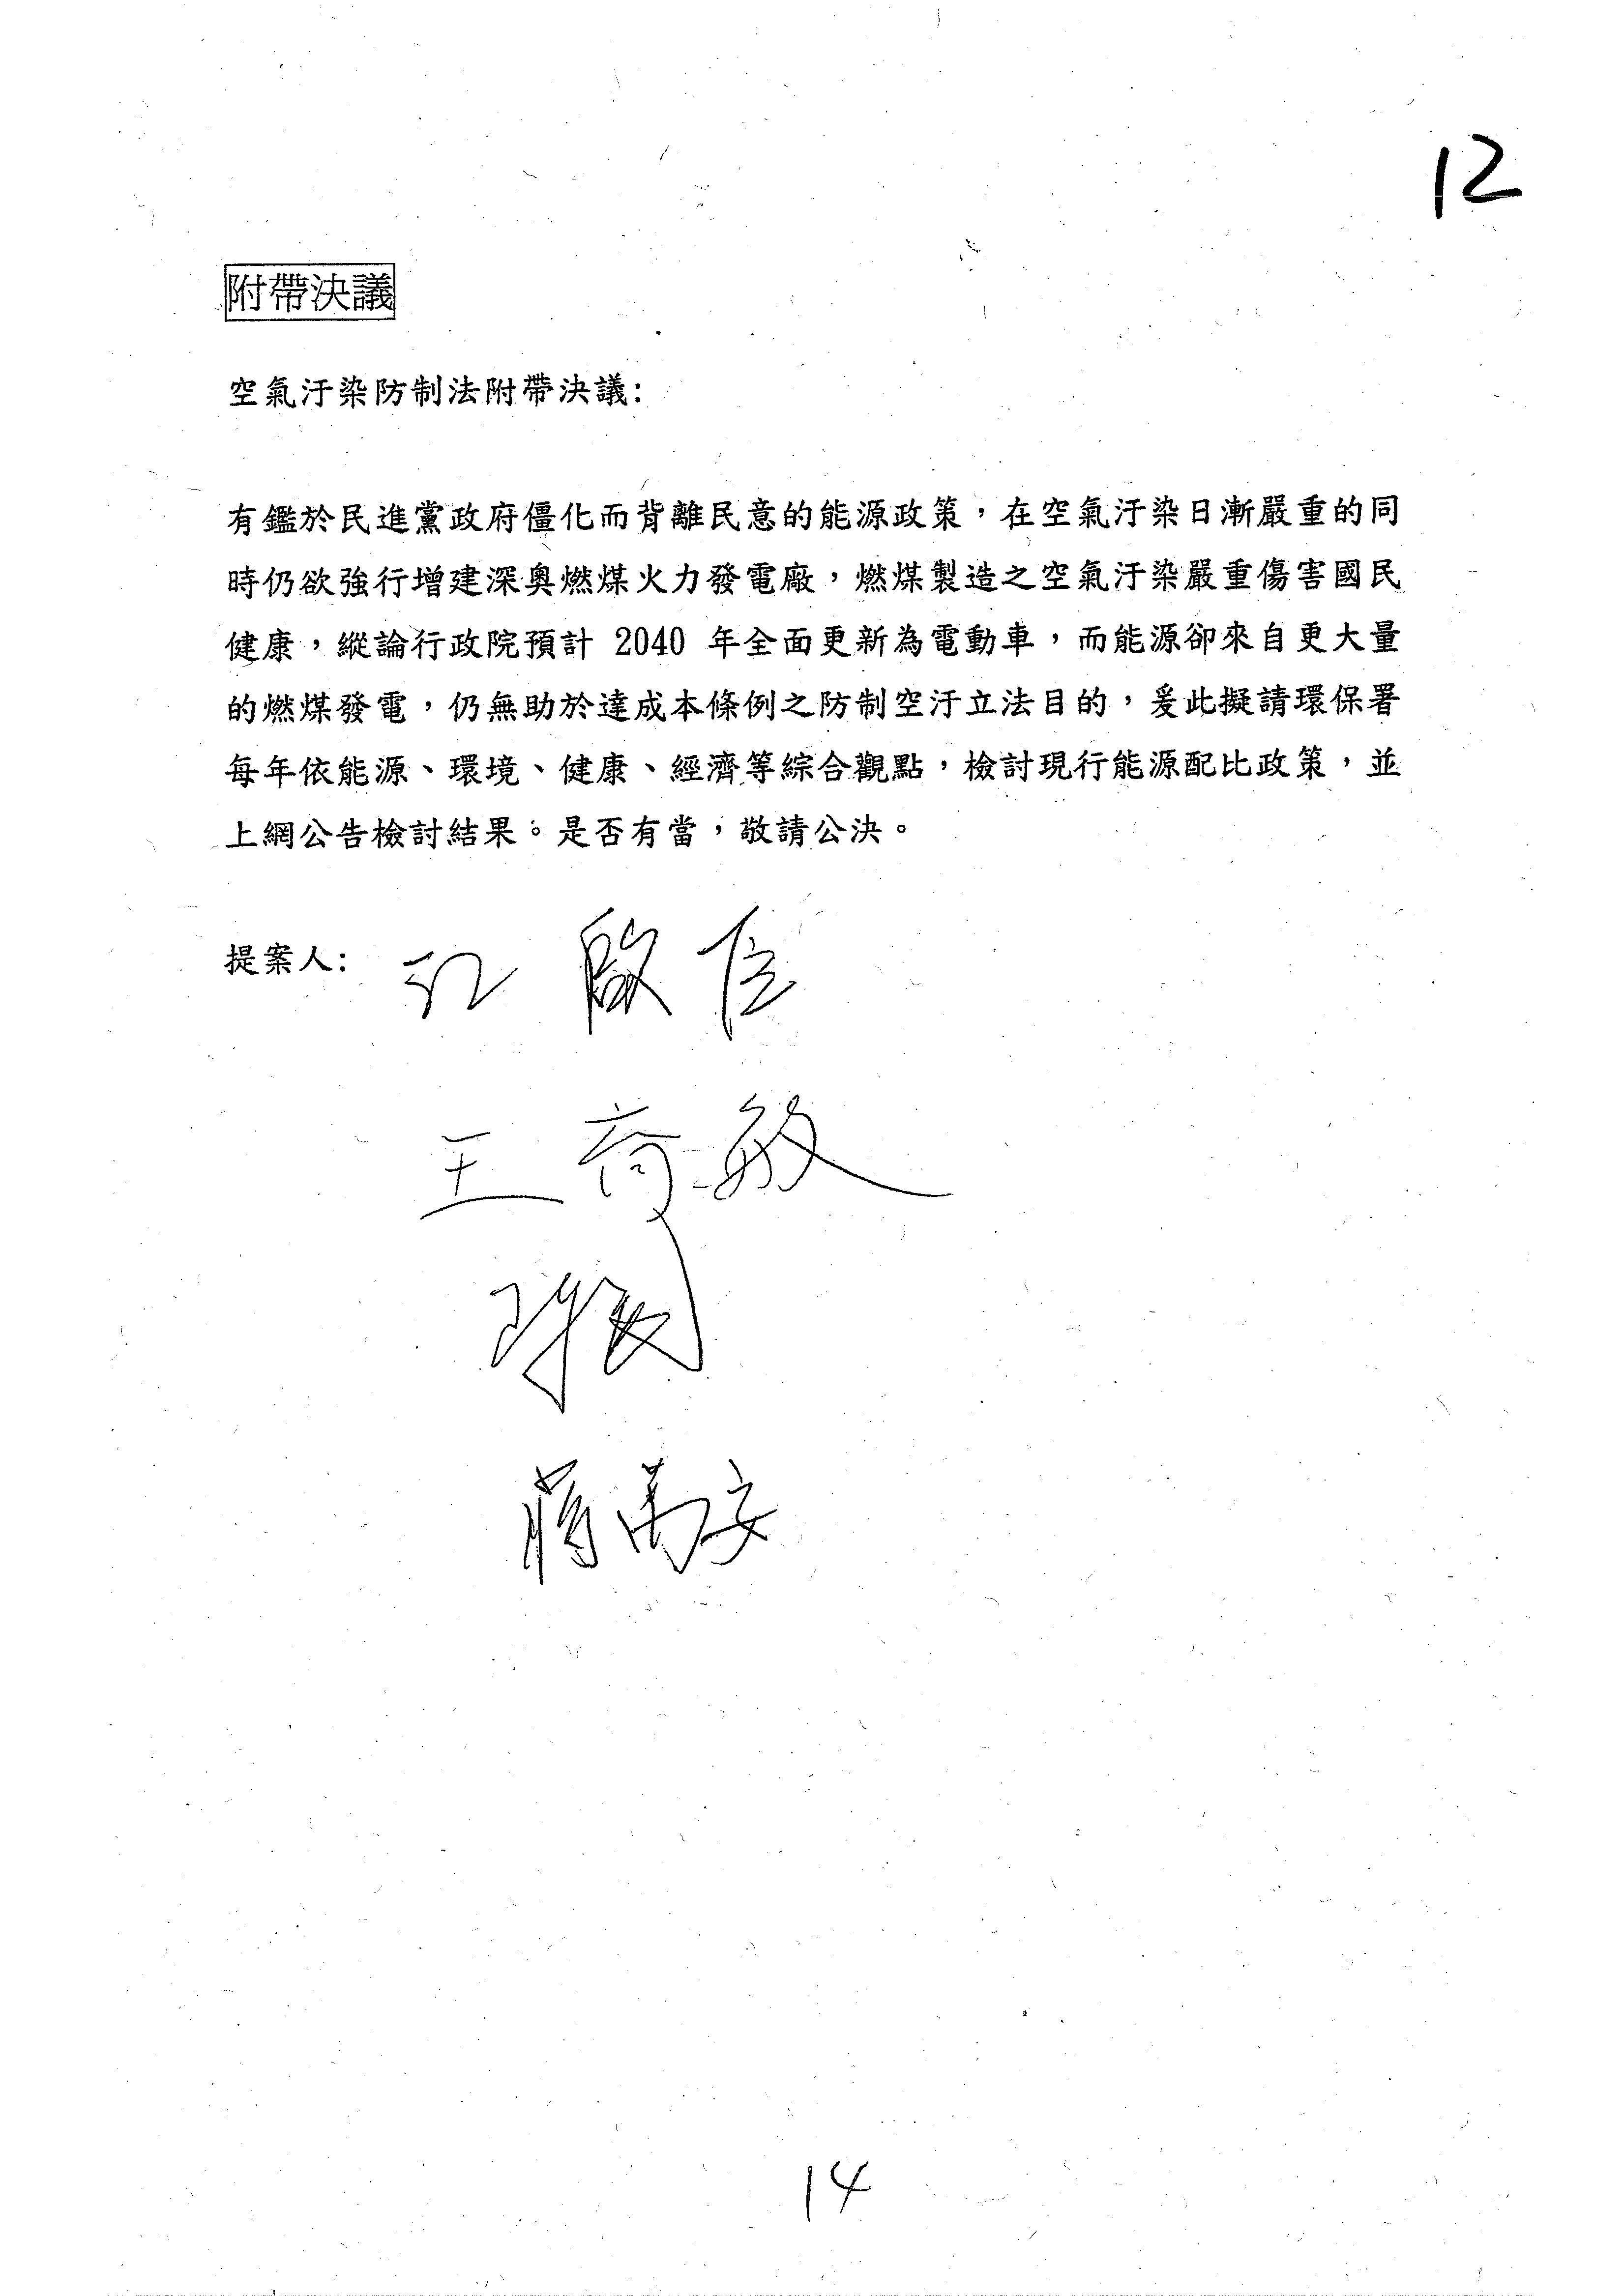 12
附帶決議
空氣汙染防制法附帶決議:
有鑑於民進黨政府僵化而背離民意的能源政策，在空氣汙染日漸嚴重的同
時仍欲強行增建深奧燃煤火力發電廠，燃煤製造之空氣汙染嚴重傷害國民
健康，縱論行政院預計 2040 年全面更新為電動車，而能源卻來自更大量
的燃煤發電，仍無助於達成本條例之防制空汙立法目的，爰此擬請環保署
每年依能源、環境、健康、經濟等綜合觀點，檢討現行能源配比政策，並
上網公告檢討結果。是否有當，敬請公決。
提案人: 江啟臣
王育敏
蔣萬安
14